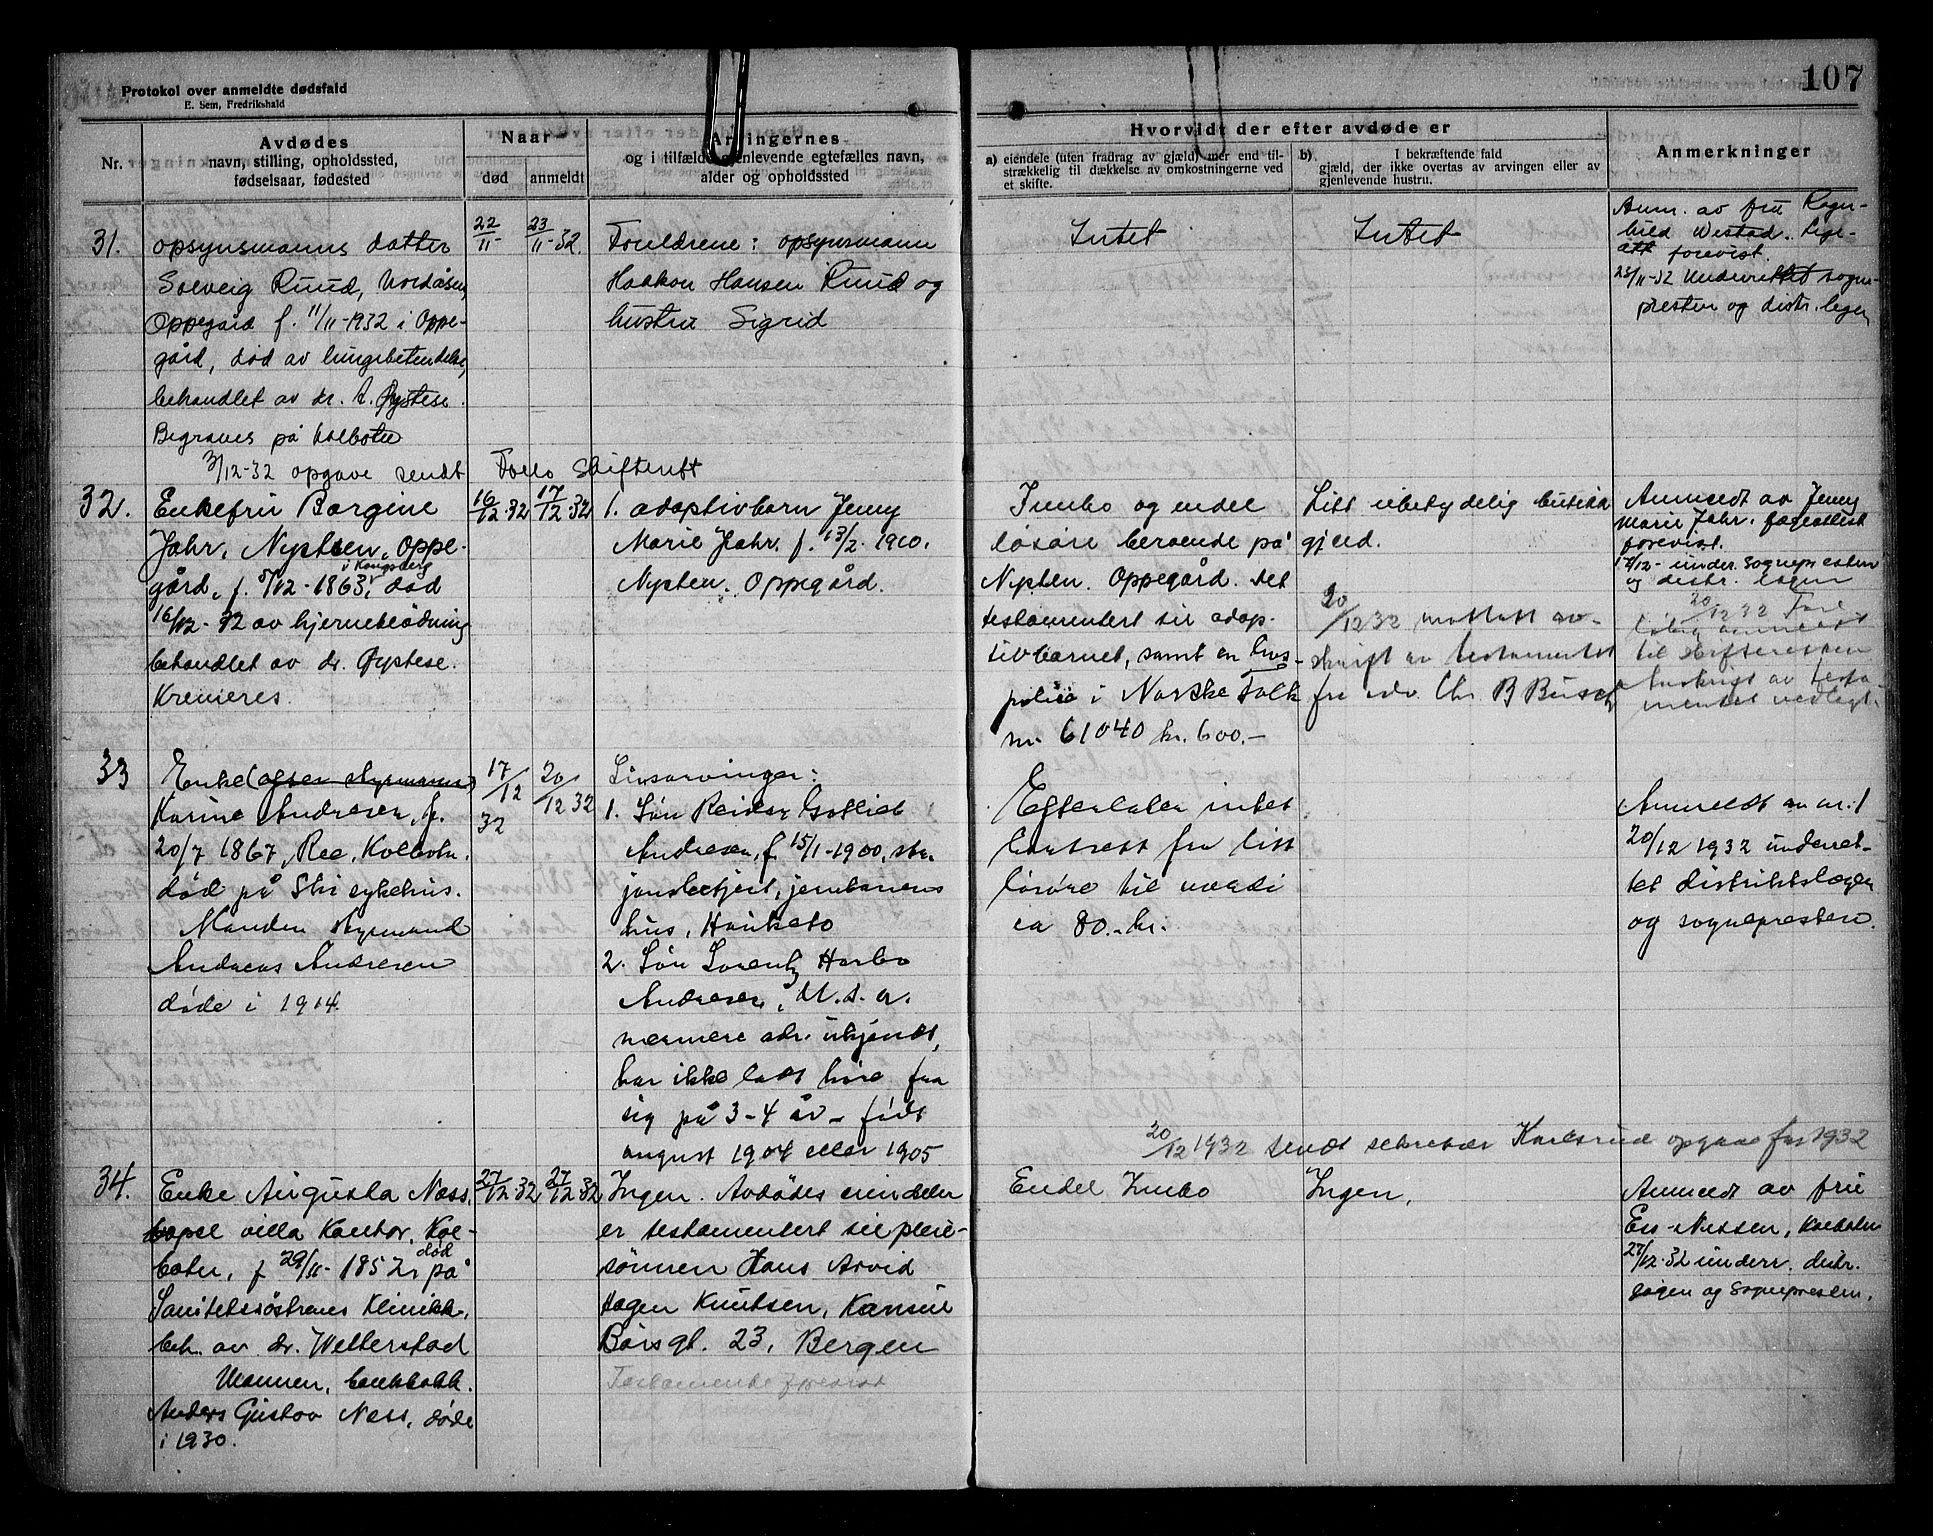 107
Protokol over anmeldte dødsfald
E. Sem, Fredrikshald
Nr.
Avdødes
navn, stilling, opholdssted,
fødselsaar, fødested
Naar
død
anmeldt
Arvingernes
og i tilfælde gjenlevende egtefælles navn,
alder og opholdssted
Hvorvidt der efter avdøde er
a) eiendele (uten fradrag av gjæld) mer end til-
strækkelig til dækkelse av omkostningerne ved
et skifte.
b) I bekræftende fald
gjæld, der ikke overtas av arvingen eller av
gjenlevende hustru.
Anmerkninger
31.
opsynsmanns datter
Solveig Ruud, Nordåsen,
Oppegård f. 11/11-1932 i Oppe-
gård, død av lungebetendelse,
behandlet av dr. A. Øystese.
Begraves på Kolbotn
22/11-
23/11-32.
Foreldrene: opsynsmann
Haakon Hansen Ruud og
hustru Sigrid
Intet
Intet
Anm. av fru Ragn-
hild Westad. Lege-
att forevist.
23/11-32 Underrettet sogne-
presten og distr. legen
3/12-32 opgave sendt Follo Skifterett
32.
Enkefru Borgine
Jahr, Nysten, Oppe-
gård, f. 5/12-1863, i Kongsberg død
16/12-32 av hjerneblødning
behandlet av dr. Øystese.
Kremeres.
16/12-32
17/12-32
1. adoptivbarn Jenny
Marie Jahr. f. 13/2-1910.
Nysten. Oppegård.
Innbo og endel
løsøre beroende på
Nysten. Oppegård. Det
testamentert til adop-
tivbarnet, samt en livs-
polise i Norske Folk
nr. 61040 kr. 600.-
Litt ubetydelig butikk
gjeld.
20/12 32 mottatt av-
skrift av testamentet
fra adv. Chr. B Busch
Anmeldt av Jenny
Marie Jahr. Legeattest
forevist.
17/12- under. sognepresten
og distr. legen
20/12 32 Fore
løbig anmeldt
til skifteretten
Avskrift av testa-
mentet vedlagt.
33
Enke (efter styrmann)
Karine Andresen, f.
20/7 1867, Ree, Kolbotn.
død på Ski sykehus.
Manden styrmand
Andreas Andresen
døde i 1914.
17/12
32
20/12 32
Livsarvinger:
1. Søn Reidar Gotlieb
Andresen, f. 15/1-1900, sta-
jonsbetjent, jernbanens
hus, Hauketo
2. Søn Lorentz Harbo
Andresen, U.S.A.
nærmere adr. ukjendt,
har ikke latt høre fra
sig på 3-4 år - født
august 1904 eller 1905
Efterlater intet
bortsett fra litt
løsøre til verdi
ca 80.- kr.
Anmeldt av nr. 1
20/12 1932 underret-
tet distriktslægen
og sognepresten.
20/12 1932 sendt sekretær Karlsrud opgave for 1932
34.
Enke Augusta Ness,
bopel villa Kantor, Kol-
botn, f 29/11-1852, død på
Sanitetssøstrenes Klinikk,
beh. av dr. Wetterstad
Mannen, bankbokh.
Anders Gustav Ness, døde
i 1930.
27/12-32
27/12-32
Ingen. Avdødes eiendeler
er testamentert til pleie-
sønnen Hans Arvid
Hagen Knutsen, Konsul
Børsgt. 23, Bergen
Testamente forevist
Endel Innbo
Ingen,
Anmeldt av frue
Ess-Nissen, Kolbotn
27/12-32 underr. distr.
legen og Sognepresten.